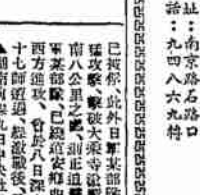 址：南京路石路口
話：九四八六九特
已被俘、此外日軍某部隊
猛攻擊、擊破大乘寺沿
南八公里之處、刻正追擊
軍某部隊、已繞過安鄉
西方進攻、曾於八日深
十七師遭遇、經激戰後、